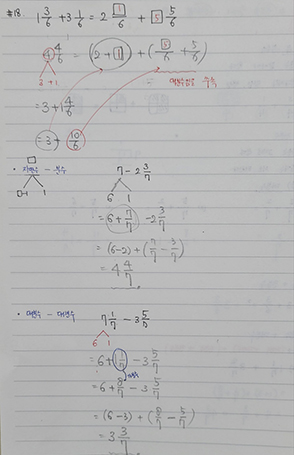 #18. 1 3/6 + 3 1/6 = 2 1/6 + 5 5/6
4 4/6 = (2+1) + (5/6 + 5/6)
3 + 1
= 3 + 1 4/6
= 3 + 10/6
• 자연수 - 분수
7 - 2 3/7
□-1 1
6 1
= 6 + 7/7 - 2 3/7
= (6-2) + (7/7 - 3/7)
= 4 4/7
• 대분수 - 대분수
7 1/7 - 3 5/7
6 1
= 6 + 1 1/7 - 3 5/7
= 6 + 8/7 - 3 5/7
= (6-3) + (8/7 - 5/7)
= 3 3/7